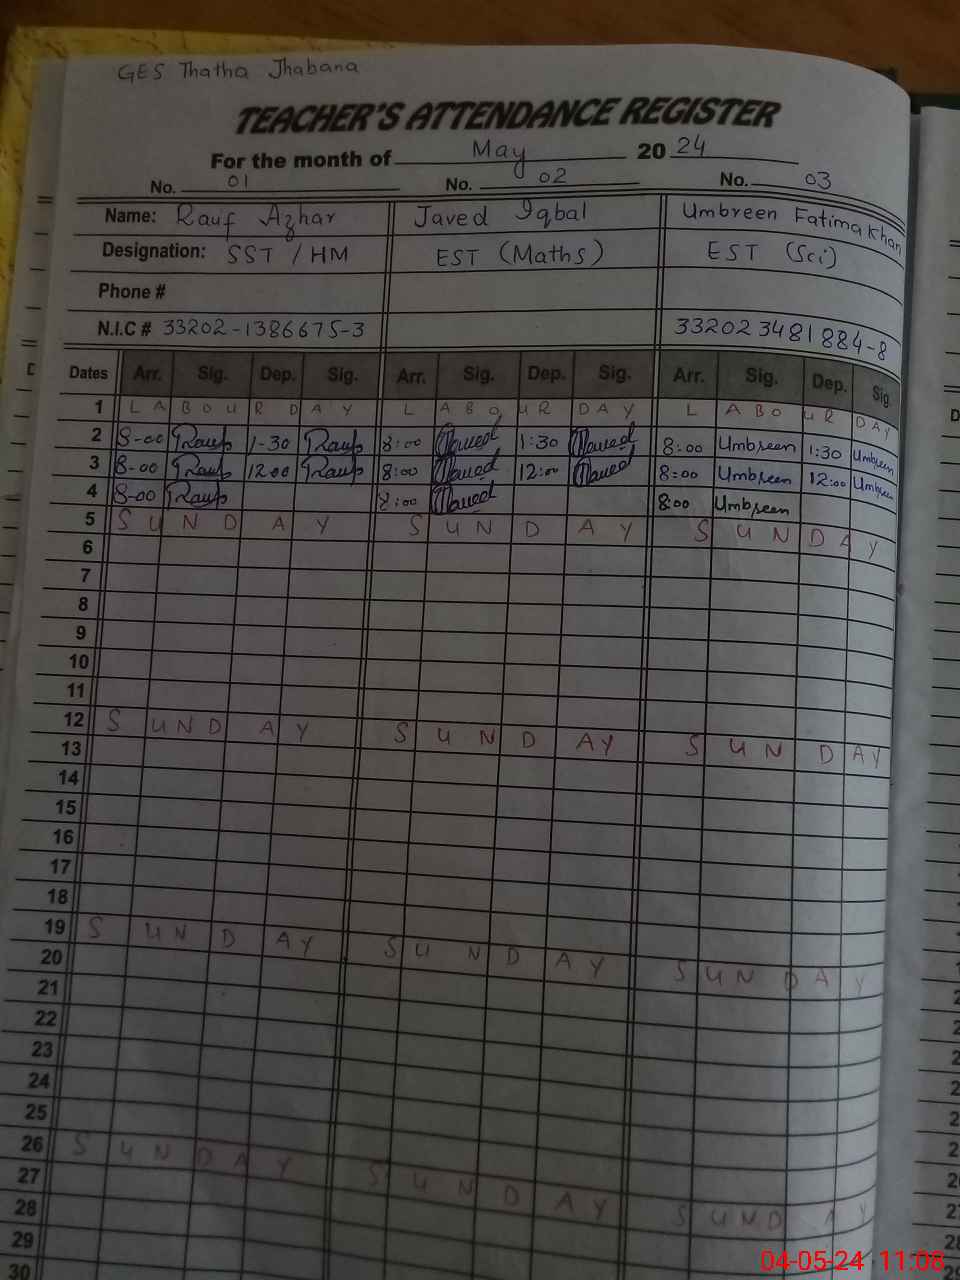 GES Thatha Jhabana
TEACHER'S ATTENDANCE REGISTER
For the month of May 2024
No. 01 No. 02 No. 03
Name: Rauf Azhar Javed Iqbal Umbreen Fatima Khan
Designation: SST / HM EST (Maths) EST (Sci)
Phone #
N.I.C # 33202-1386675-3 332023481884-8
Dates Arr. Sig. Dep. Sig. Arr. Sig. Dep. Sig. Arr. Sig. Dep. Sig.
1 LABOUR DAY LABOUR DAY LABOUR DAY
2 8-00 Rauf 1-30 Rauf 8:00 Javed 1:30 Javed 8:00 Umbreen 1:30 Umbreen
3 8-00 Rauf 12:00 Rauf 8:00 Javed 12:00 Javed 8:00 Umbreen 12:00 Umbreen
4 8-00 Rauf 8:00 Javed 8:00 Umbreen
5 SUNDAY SUNDAY SUNDAY
6
7
8
9
10
11
12 SUNDAY SUNDAY SUNDAY
13
14
15
16
17
18
19 SUNDAY SUNDAY SUNDAY
20
21
22
23
24
25
26 SUNDAY SUNDAY SUNDAY
27
28
29
30
04-05-24 11:08